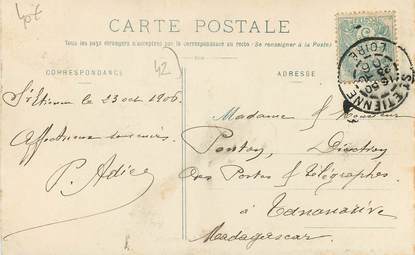 40f
CARTE POSTALE
Tous les pays étrangers n'acceptent pas la correspondance au recto (Se renseigner à la Poste)
42
CORRESPONDANCE
ADRESSE
St ETIENNE
LOIRE
St Etienne le 23 oct 1906
Affectueux
P. Adice
Madame & Monsieur
Pontoy, Directeur
des Postes & Télégraphes
à Tananarive
Madagascar